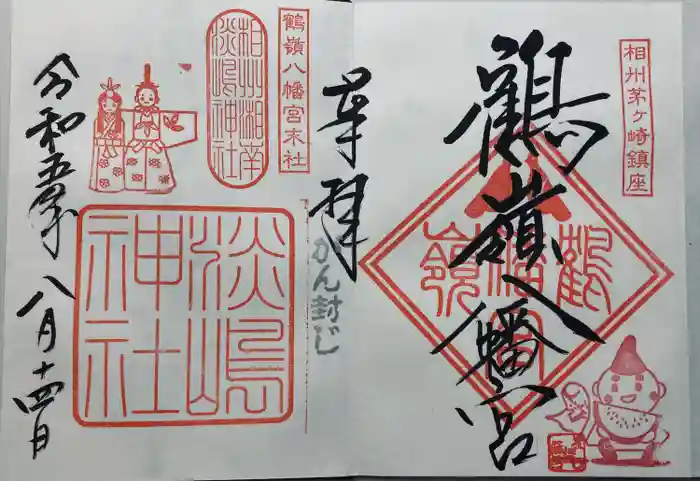 相州茅ヶ崎鎮座
鶴嶺八幡宮
鶴嶺八幡宮
奉拝
かん封じ
鶴嶺八幡宮末社
相州湘南
淡嶋神社
淡嶋神社
令和五年八月十四日